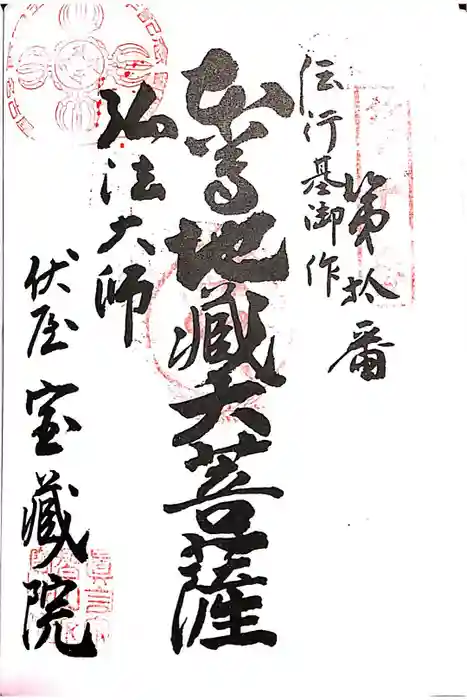 第拾番
伝行基御作
本尊地藏大菩薩
弘法大師
伏屋宝藏院